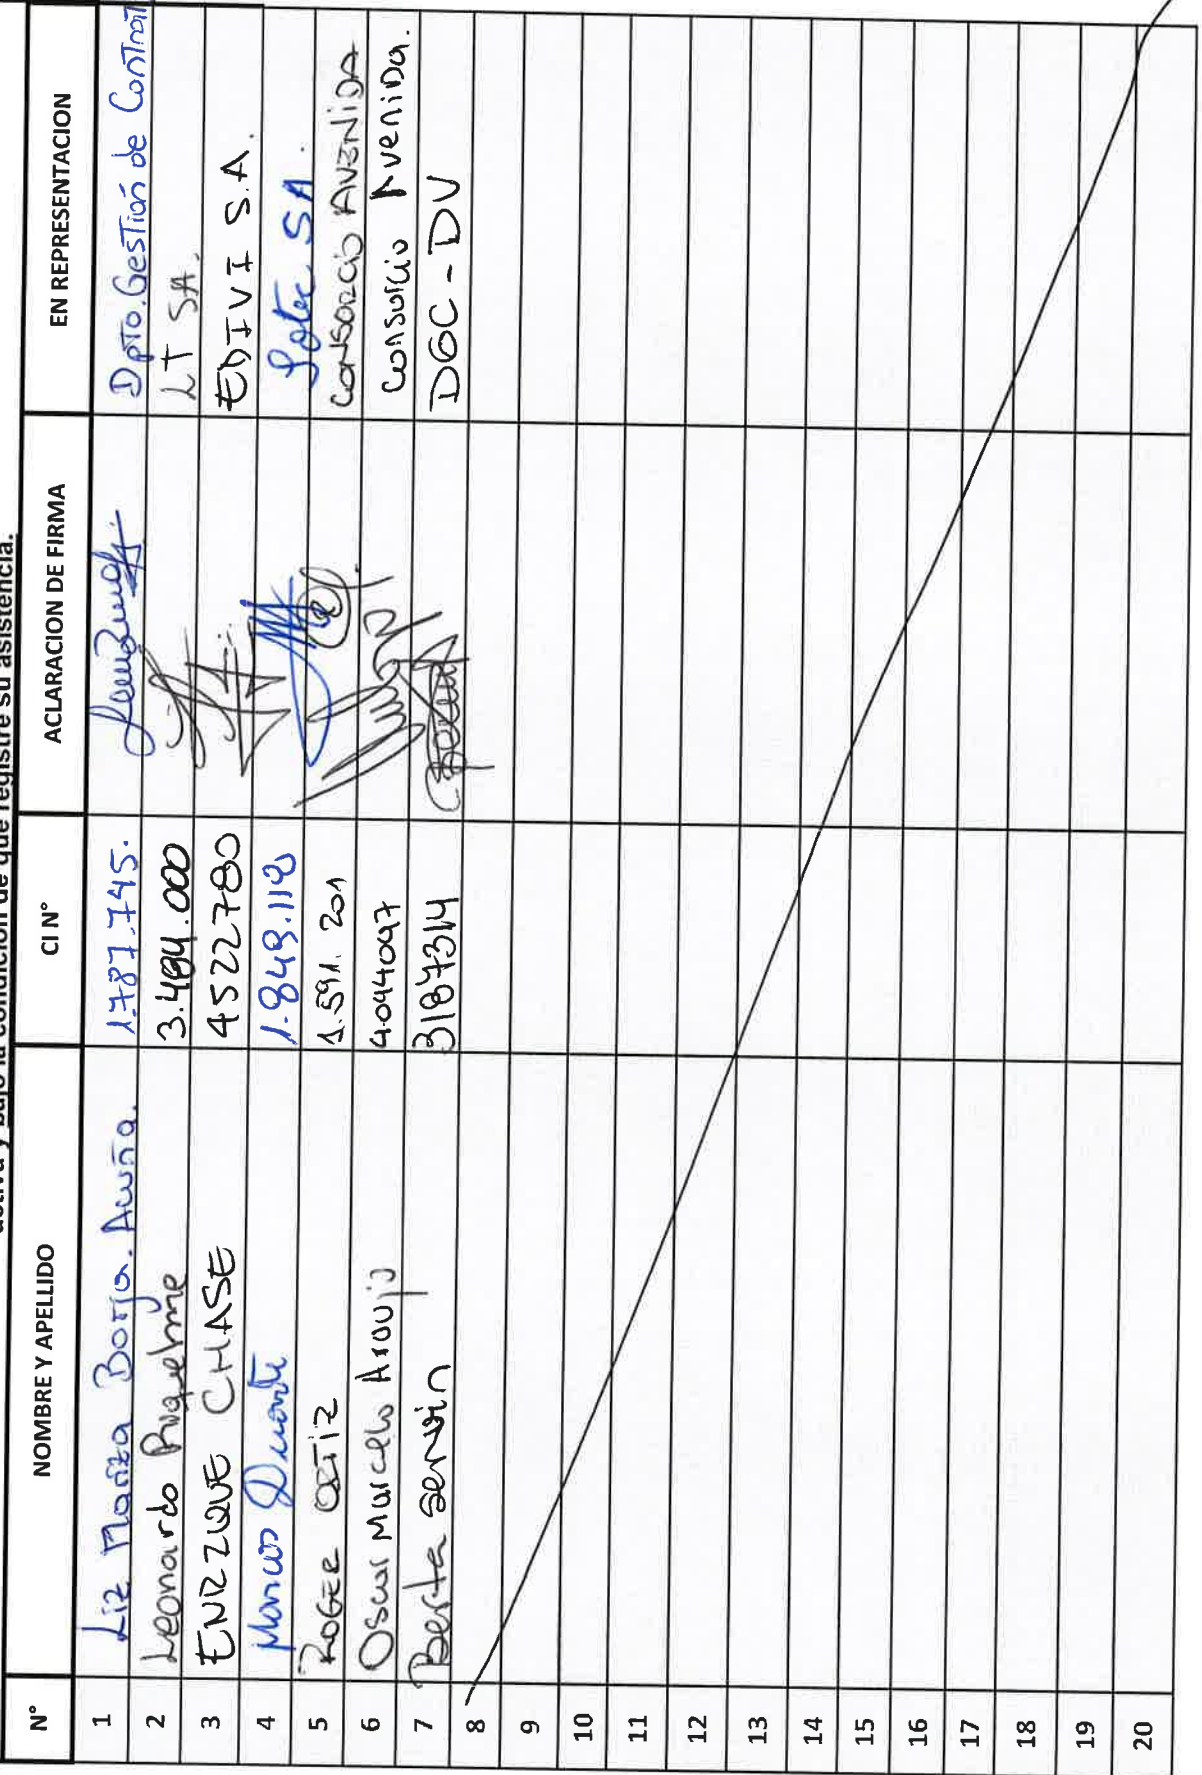 activa y bajo la condición de que registre su asistencia.
N° NOMBRE Y APELLIDO CI N° ACLARACION DE FIRMA EN REPRESENTACION
1 Liz Mariza Borja. Acuña. 1.787.745. Dpto. Gestión de Contrat
2 Leonardo Riquelme 3.494.000 LT SA.
3 ENRIQUE CHASE 4522780 EDIVI S.A.
4 Marcos Duarte 1.849.118 Sotec SA.
5 ROGER ORTIZ 1.591.201 CONSORCIO AVENIDA
6 Oscar Marcelo Araujo 4044047 Consorcio Avenida.
7 Berta Servin 3187314 DGC - DV
8
9
10
11
12
13
14
15
16
17
18
19
20